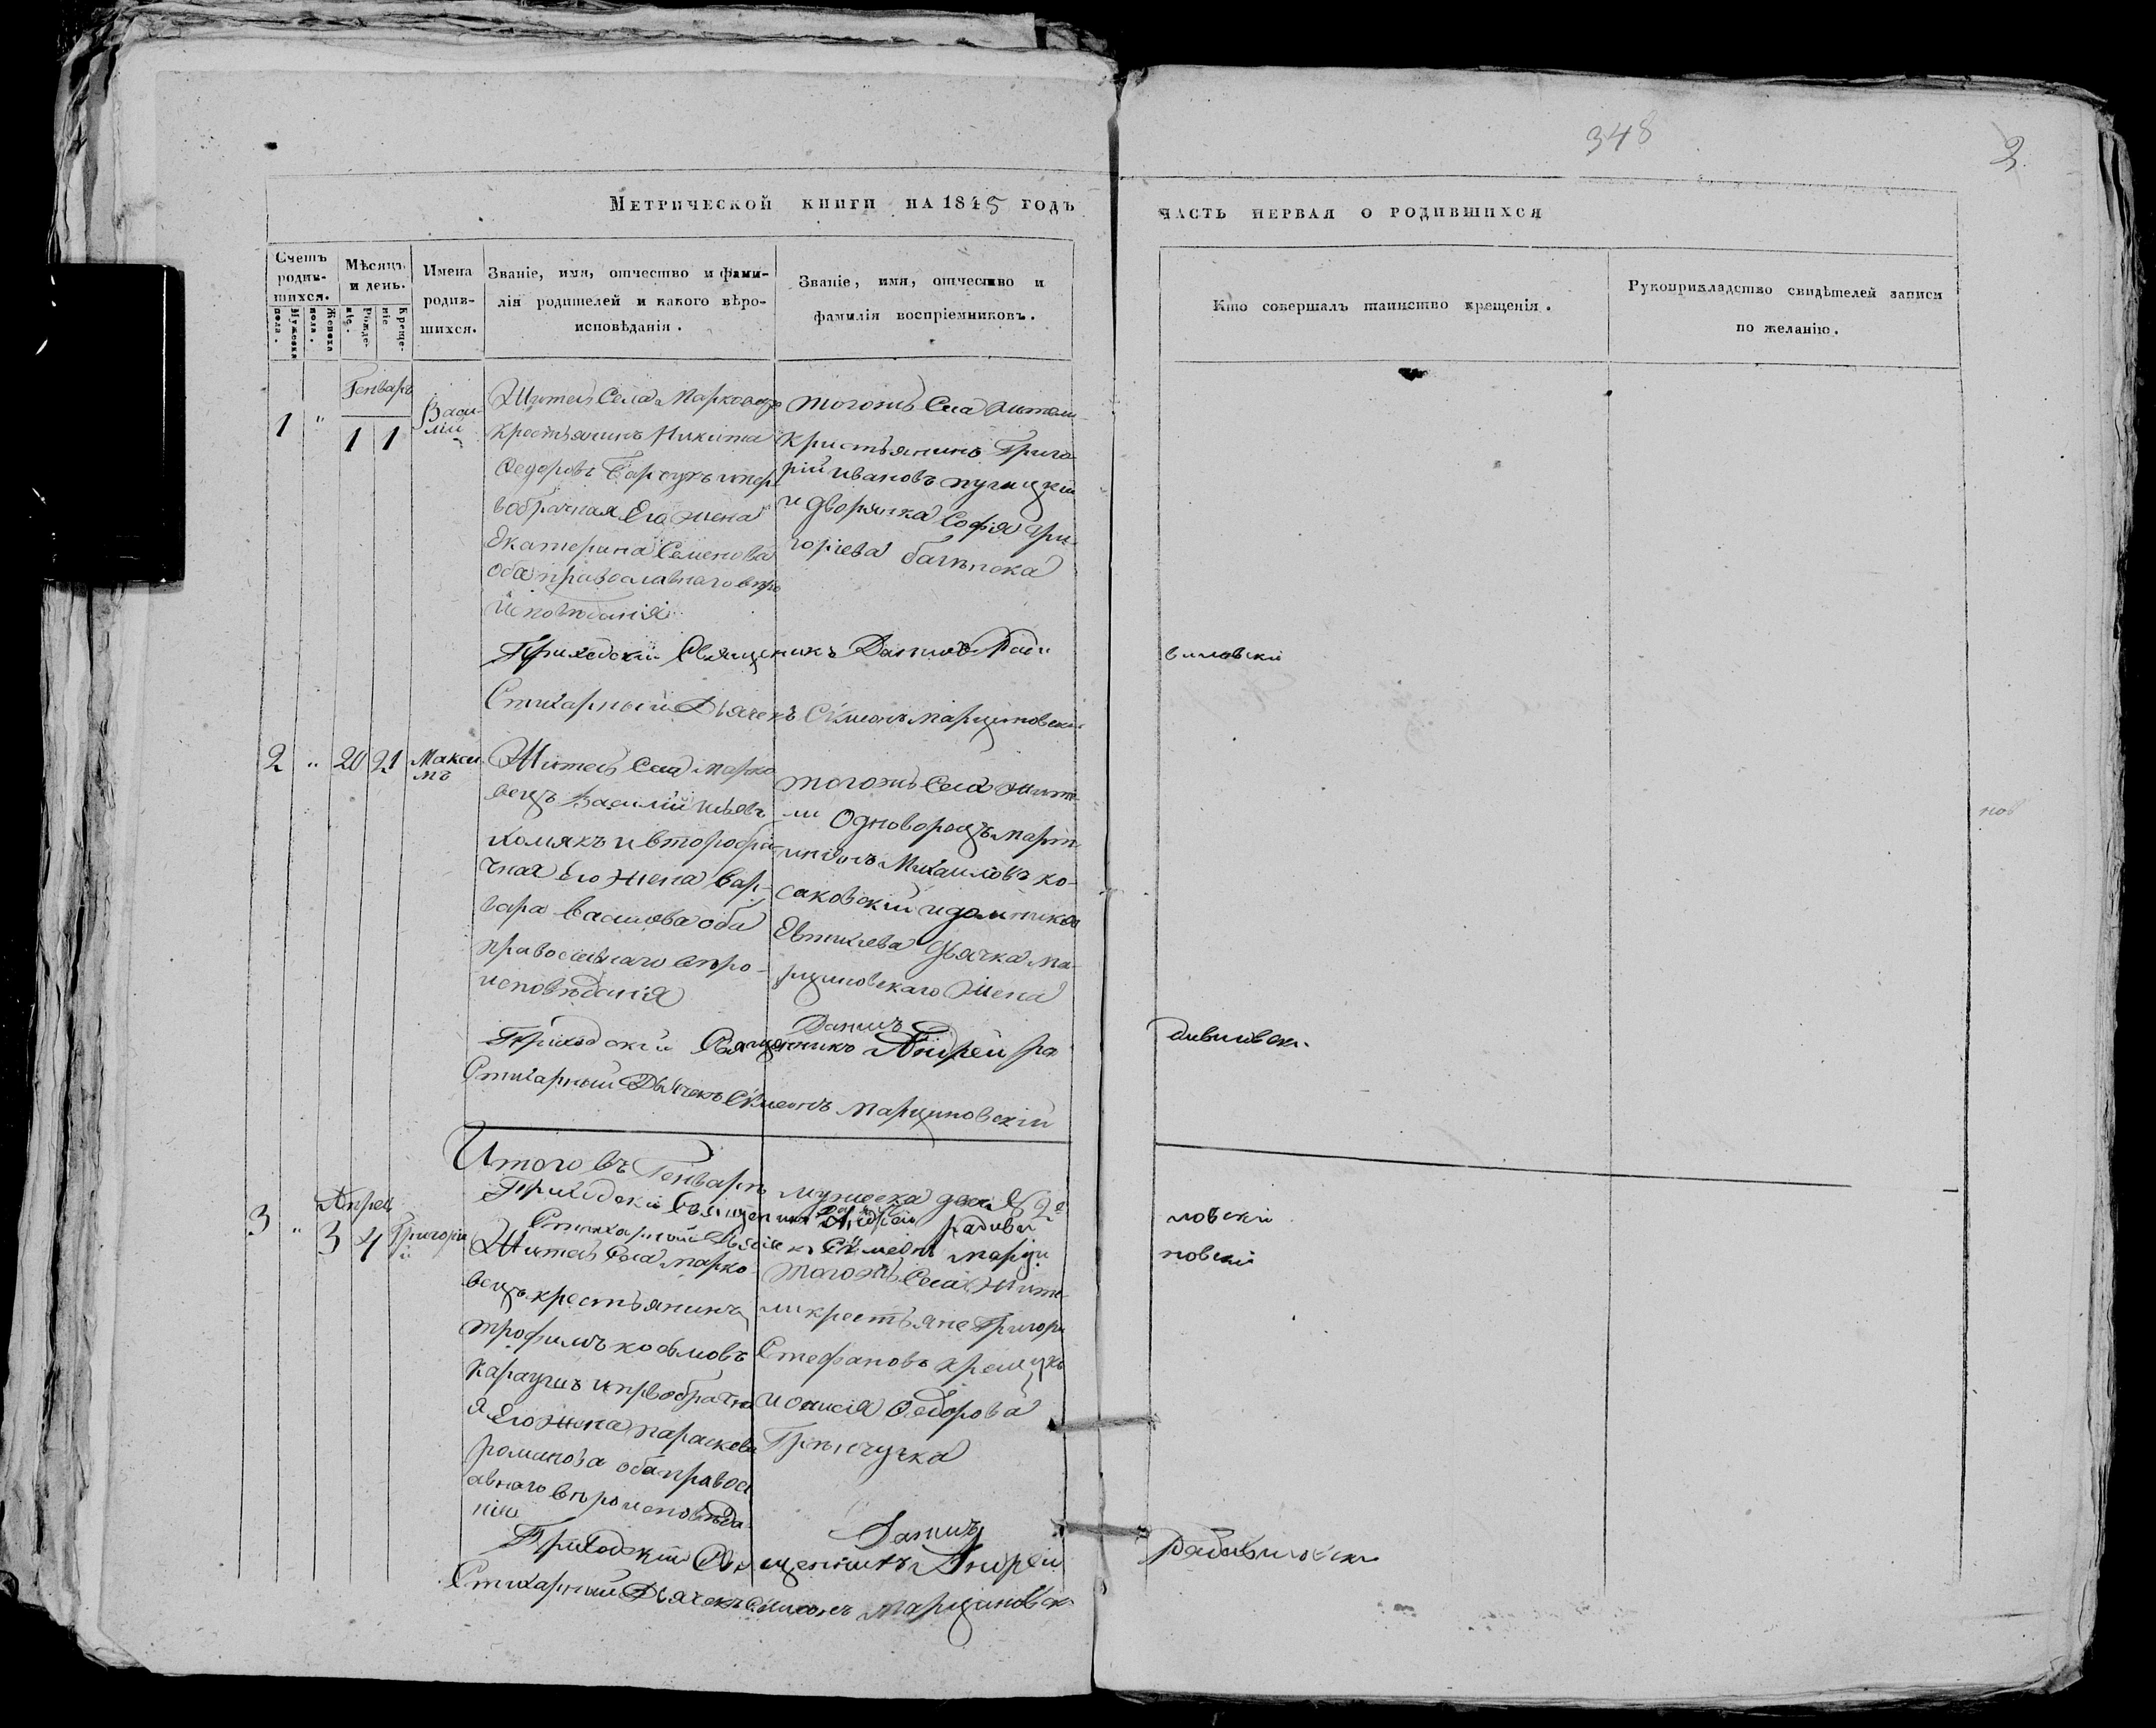 348
2
Метрической книги на 1845 годъ
часть первая о родившихся
Счетъ родив-шихся.
Мужеска пола.
Женска пола.
Мѣсяцъ и день.
Рожде-ніе.
Креще-ніе
Имена родив-шихся.
Званіе, имя, отчество и фами-
лія родителей и какого вѣро-
исповѣданія.
Званіе, имя, отчество и
фамилія воспріемниковъ.
Кто совершалъ таинство крещенія.
Рукоприкладство свидѣтелей записи
по желанію.
Генварь
1 " 1 1
Васи-
лій
Житель Села Марковецъ
крестьянинъ Никита
Федоровъ Барсукъ и пер
вобрачная Его жена
Екатерина Семенова
оба православнаго вѣро
исповѣданія
тогожъ Села жители
кристьянинъ Григо-
рій Ивановъ
и дворянка Софія Гри-
горіева
Приходскій Священникъ Данилъ Ради
виловскій
Стихарный Дьячекъ Симеонъ Марциновскій
2 " 20 21
Макси
мъ
Житель Села Марко
вецъ Василій
Хомякъ и второбра
чная Его жена Вар-
вара Василова оба
православнаго вѣро-
исповѣданія
тогожъ Села жите-
ли Однодворецъ Март
Михаиловъ ко-
саковскій и
Евтихіева дьячка Ма-
рциновскаго жена
Данилъ
Приходскій Священникъ Андрей Ра
дивиловскі
Стихарный Дьячекъ Симеонъ Марциновскій
Итого въ Генварѣ мужеска два 2
Приходскій Священникъ Андрей Радиви
ловскій
Стихарный Дьячекъ Симеонъ Марци
новскій
Апрель
3 " 3 4
Григорі
й
Житель Села Марко-
вецъ крестьянинъ
Трофимъ Козьмовъ
Караушъ и первобрачна
я Его жина Параскева
Романова оба правосл
авнаго вѣроисповѣда-
нія
тогожъ Села жите-
ли крестьяне Григорі
Стефановъ
Федорова
Данилъ
Приходскій Священникъ Андрей
Радивиловскі
Стихарный Дьячекъ Симеонъ Марциновск